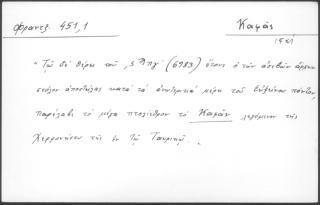 Φραντζ. 451,1
Καφάς
"Τῷ δὲ θέρει τοῦ ,ςϠπγ' (6983) ἔτους ὁ τῶν ἀσεβῶν ἀρχηγὸς
στόλον ἀποστείλας κατὰ τὰ ἀνωτερικὰ μέρη τοῦ Εὐξείνου πόντου,
παρέλαβε τὸ μέγα πτολίεθρον τὸ Καφᾶν λεγόμενον τῆς
Χερρονήσου τῆς ἐν τῇ Ταυρικῇ.